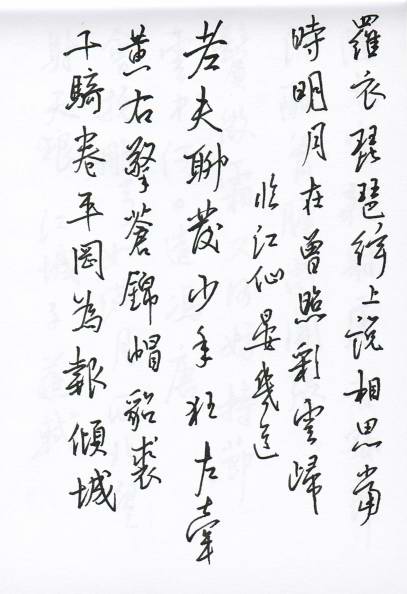 羅衣琵琶絃上說相思當
時明月在曾照彩雲歸
臨江仙晏幾道
老夫聊發少年狂左牽
黄右擎蒼錦帽貂裘
千騎卷平岡為報傾城